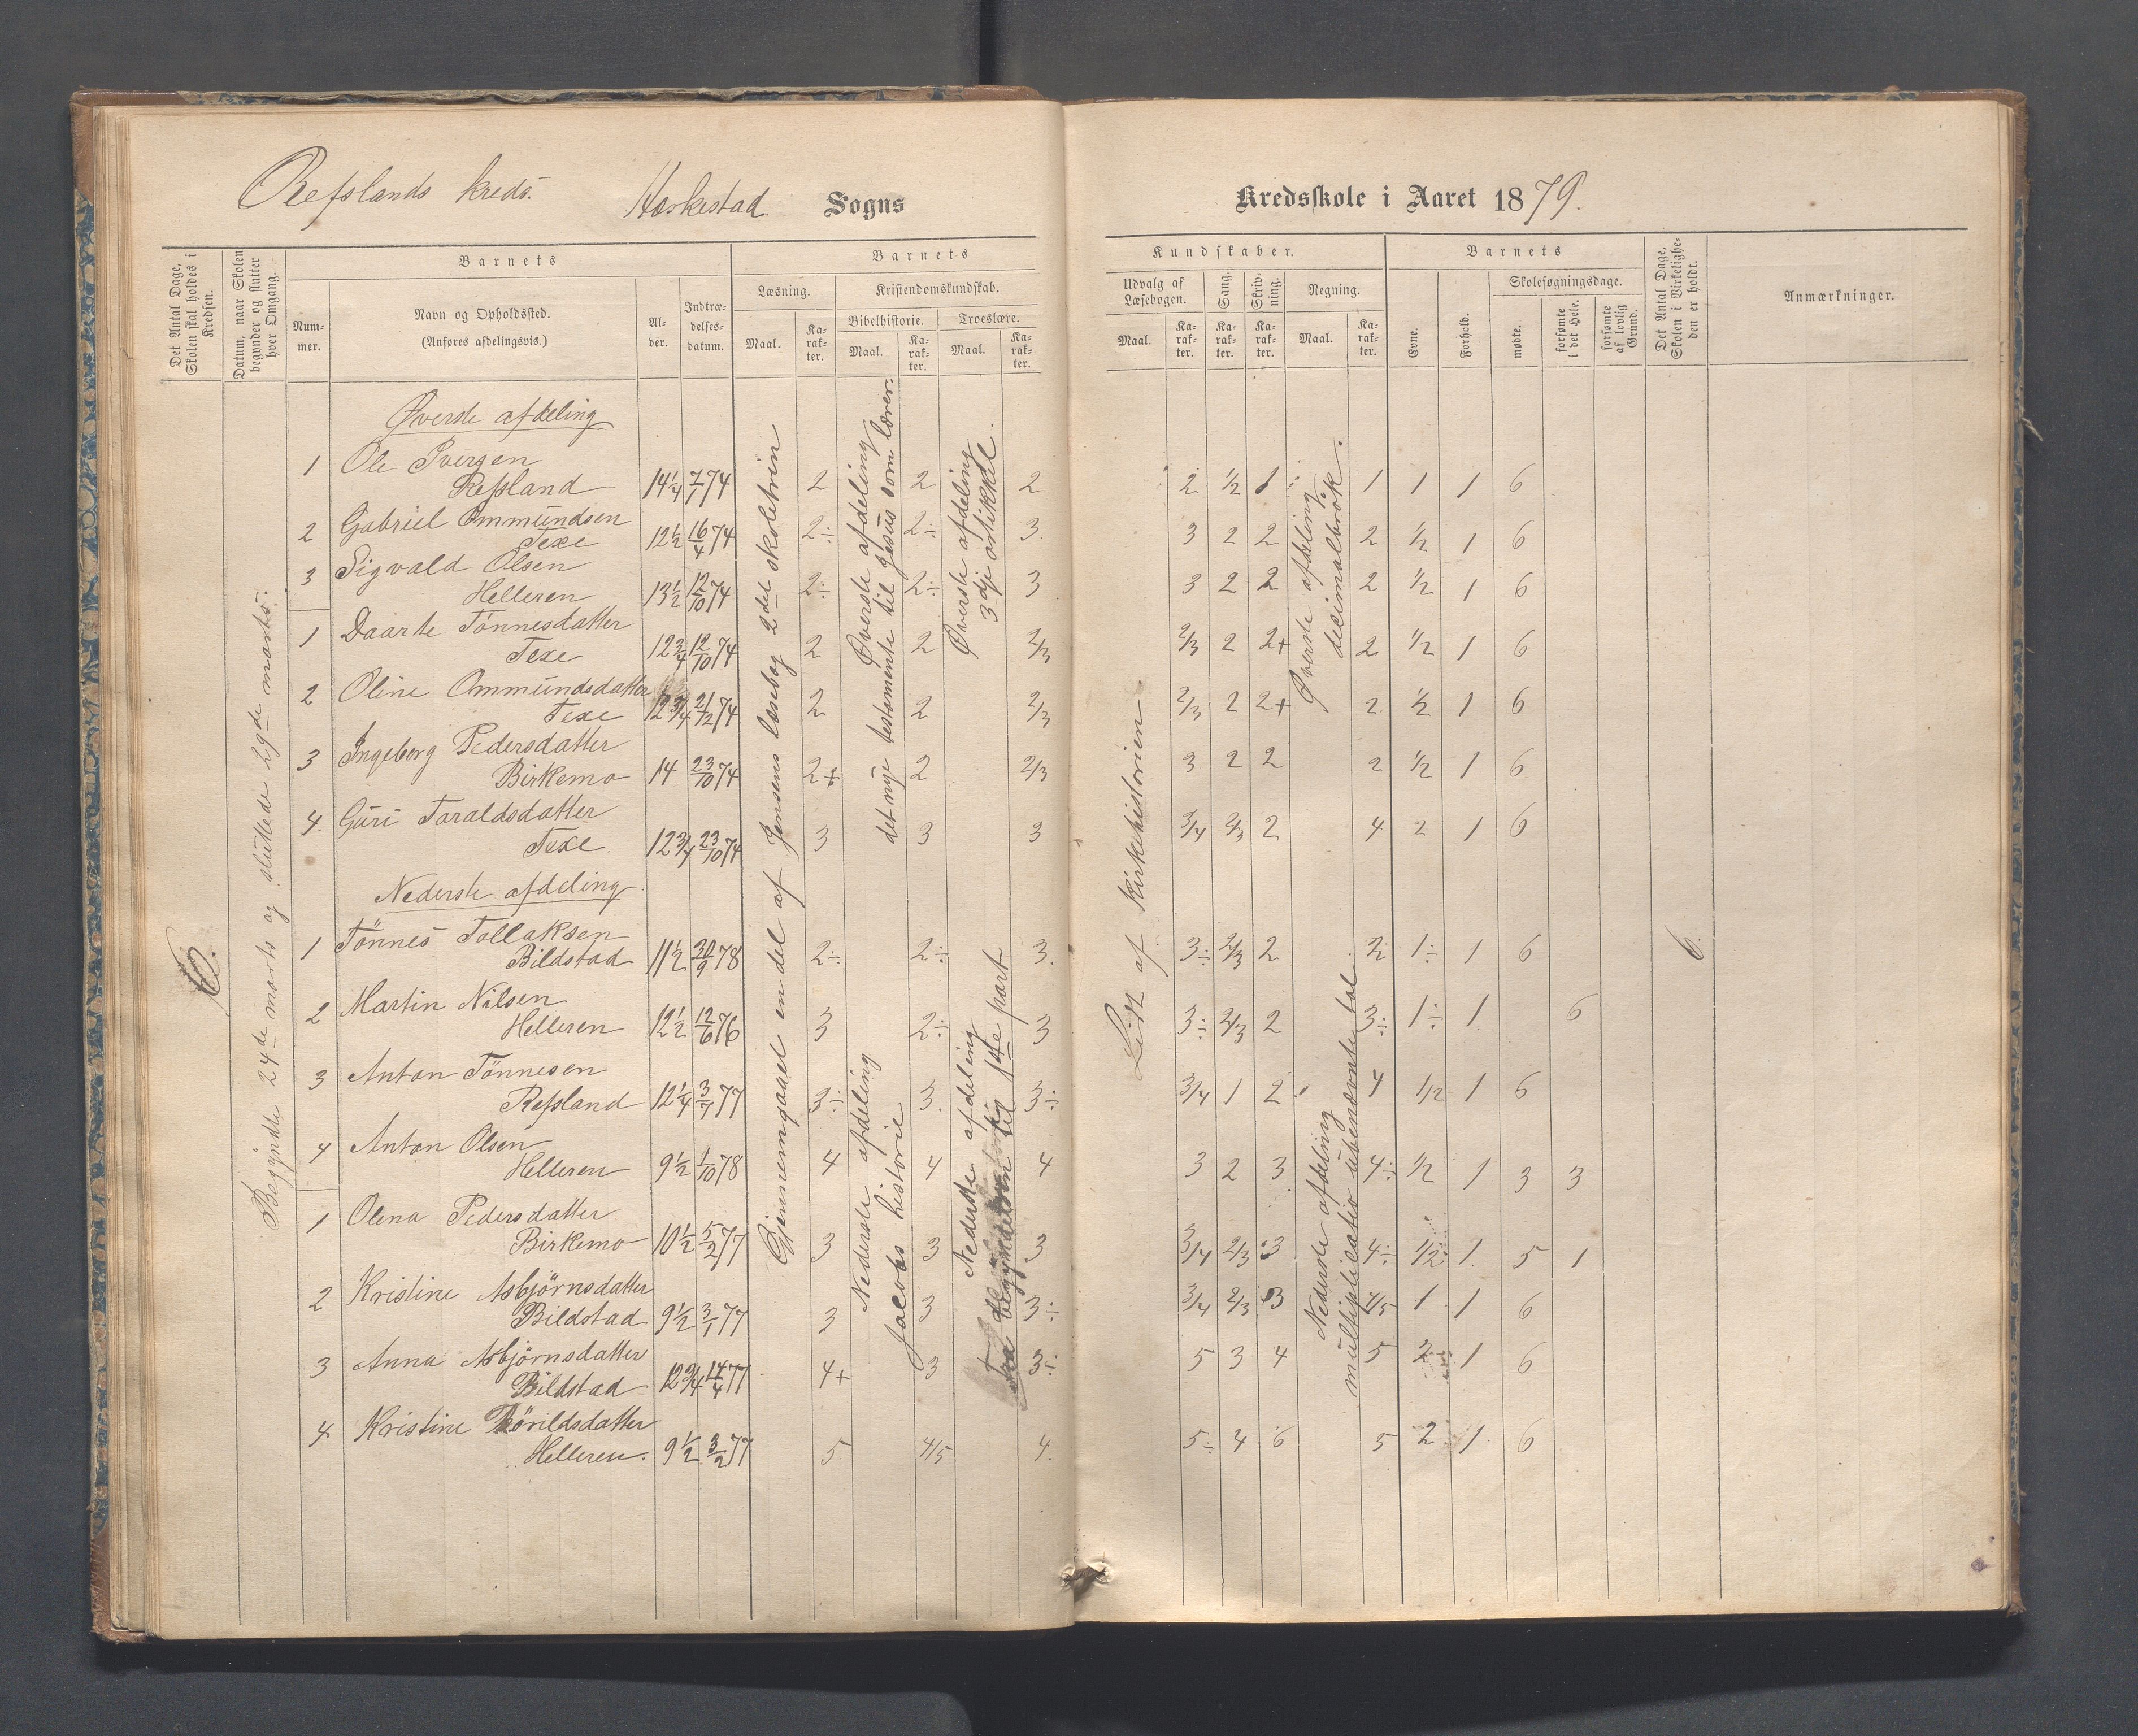 Refslands kreds.
Hæskestad Sogns
Kredsskole i Aaret 1879.
Det Antal Dage, Skolen skal holdes i Kredsen.
Datum, naar Skolen begynder og slutter hver Omgang.
Barnets
Num-
mer.
Navn og Opholdssted.
(Anføres afdelingsvis.)
Al-
der.
Indtræ-
delses-
datum.
Barnets
Læsning.
Maal.
Ka-
rak-
ter.
Kristendomskundskab.
Bibelhistorie.
Maal.
Ka-
rak-
ter.
Troeslære.
Maal.
Ka-
rak-
ter.
Kundskaber.
Udvalg af
Læsebogen.
Maal.
Ka-
rak-
ter.
Sang.
Ka-
rak-
ter.
Skriv-
ning.
Ka-
rak-
ter.
Regning.
Maal.
Ka-
rak-
ter.
Barnets
Evne.
Forhold.
Skolesøgningsdage.
mødte.
forsømte
i det Hele.
forsømte
af lovlig
Grund.
Det Antal Dage,
Skolen i Virkelighe-
den er holdt.
Anmærkninger.
6.
Begyndte 24de marts og sluttede 29de marts.
Gjennemgaaet en del af Jensens læsebog 2det skoletrin
Øverste afdeling
det nye testamente til Jesus som lærer.
Øverste afdeling
3dje artikkel.
Nederste afdeling
Jacobs historie
Nederste afdeling
Fra begyndelsen til 1ste part
Lidt af Kirkehistorien
Øverste afdeling
decimalbrøk.
Nederste afdeling
multiplicatio ubenævnte tal.
6.
Øverste afdeling
1 Ole Iversen
Refsland 14 1/4 7/1 74 2 2 2 2 1/2 1 1 1 1 6
2 Gabriel Ommundsen
Texe 12 1/2 16/4 74 2÷ 2÷ 3. 3 2 2 2 1/2 1 6
3 Sigvald Olsen
Helleren 13 1/2 12/10 74 2÷ 2÷ 3 3 2 2 2 1/2 1 6
1 Daarte Tönnesdatter
Texe 12 3/4 12/10 74 2 2 2/3 2/3 2 2+ 2 1/2 1 6
2 Oline Ommundsdatter
Texe 12 3/4 21/12 74 2 2 2/3 2/3 2 2+ 2 1/2 1 6
3 Ingeborg Pedersdatter
Birkemo 14 23/10 74 2+ 2 2/3 3 2 2 2 1/2 1 6
4. Guri Taraldsdatter
Texe. 12 3/4 23/10 74 3 3 3 3/4 2/3 2 4 2 1 6
Nederste afdeling.
1 Tönnes Tollaksen
Bildstad 11 1/2 30/9 78 2÷ 2÷ 3. 3÷ 2/3 2 2 1÷ 1 6
2 Martin Nilsen
Helleren 12 1/2 12/6 76 3 2÷ 3 3÷ 2/3 2 3÷ 1÷ 1 6
3 Anton Tönnesen
Refsland 12 1/4 3/7 77 3÷ 3. 3÷ 3/4 1 2 4 1/2 1 6
4 Anton Olsen
Helleren 9 1/2 1/10 78 4 4 4 3 2 3 4÷ 1/2 1 3 3
1 Olena Pedersdatter
Birkemo 10 1/2 5/2 77 3 3 3 3/4 2/3 3 4÷ 1/2 1. 5 1
2 Kristine Asbjörnsdatter
Bildstad 9 1/2 3/1 77 3 3 3÷ 3/4 2/3 3 4/5 1 1 6
3 Anna Asbjörnsdatter
Bildstad 12 3/4 14/4 77 4+ 3 3÷ 5 3 4 5 2÷ 1 6
4 Kristine
Helleren. 9 1/2 3/2 77 5. 4/5 4. 5÷ 4 6 5 2 1 6